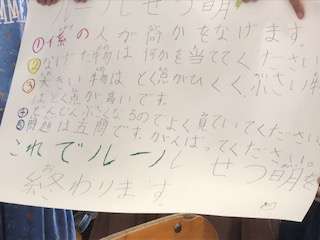 ルールせつ明
①係の人が筒かをなげます。
②なげた物は何かを当ててください。
③笑きい物はとく点がひくく、ぶさい物
はとく点が高いです。
④どんどんふくなるのでよく見ていてください
⑤問題は五問です。がんばってください。
これでルールせつ明を
終わります。